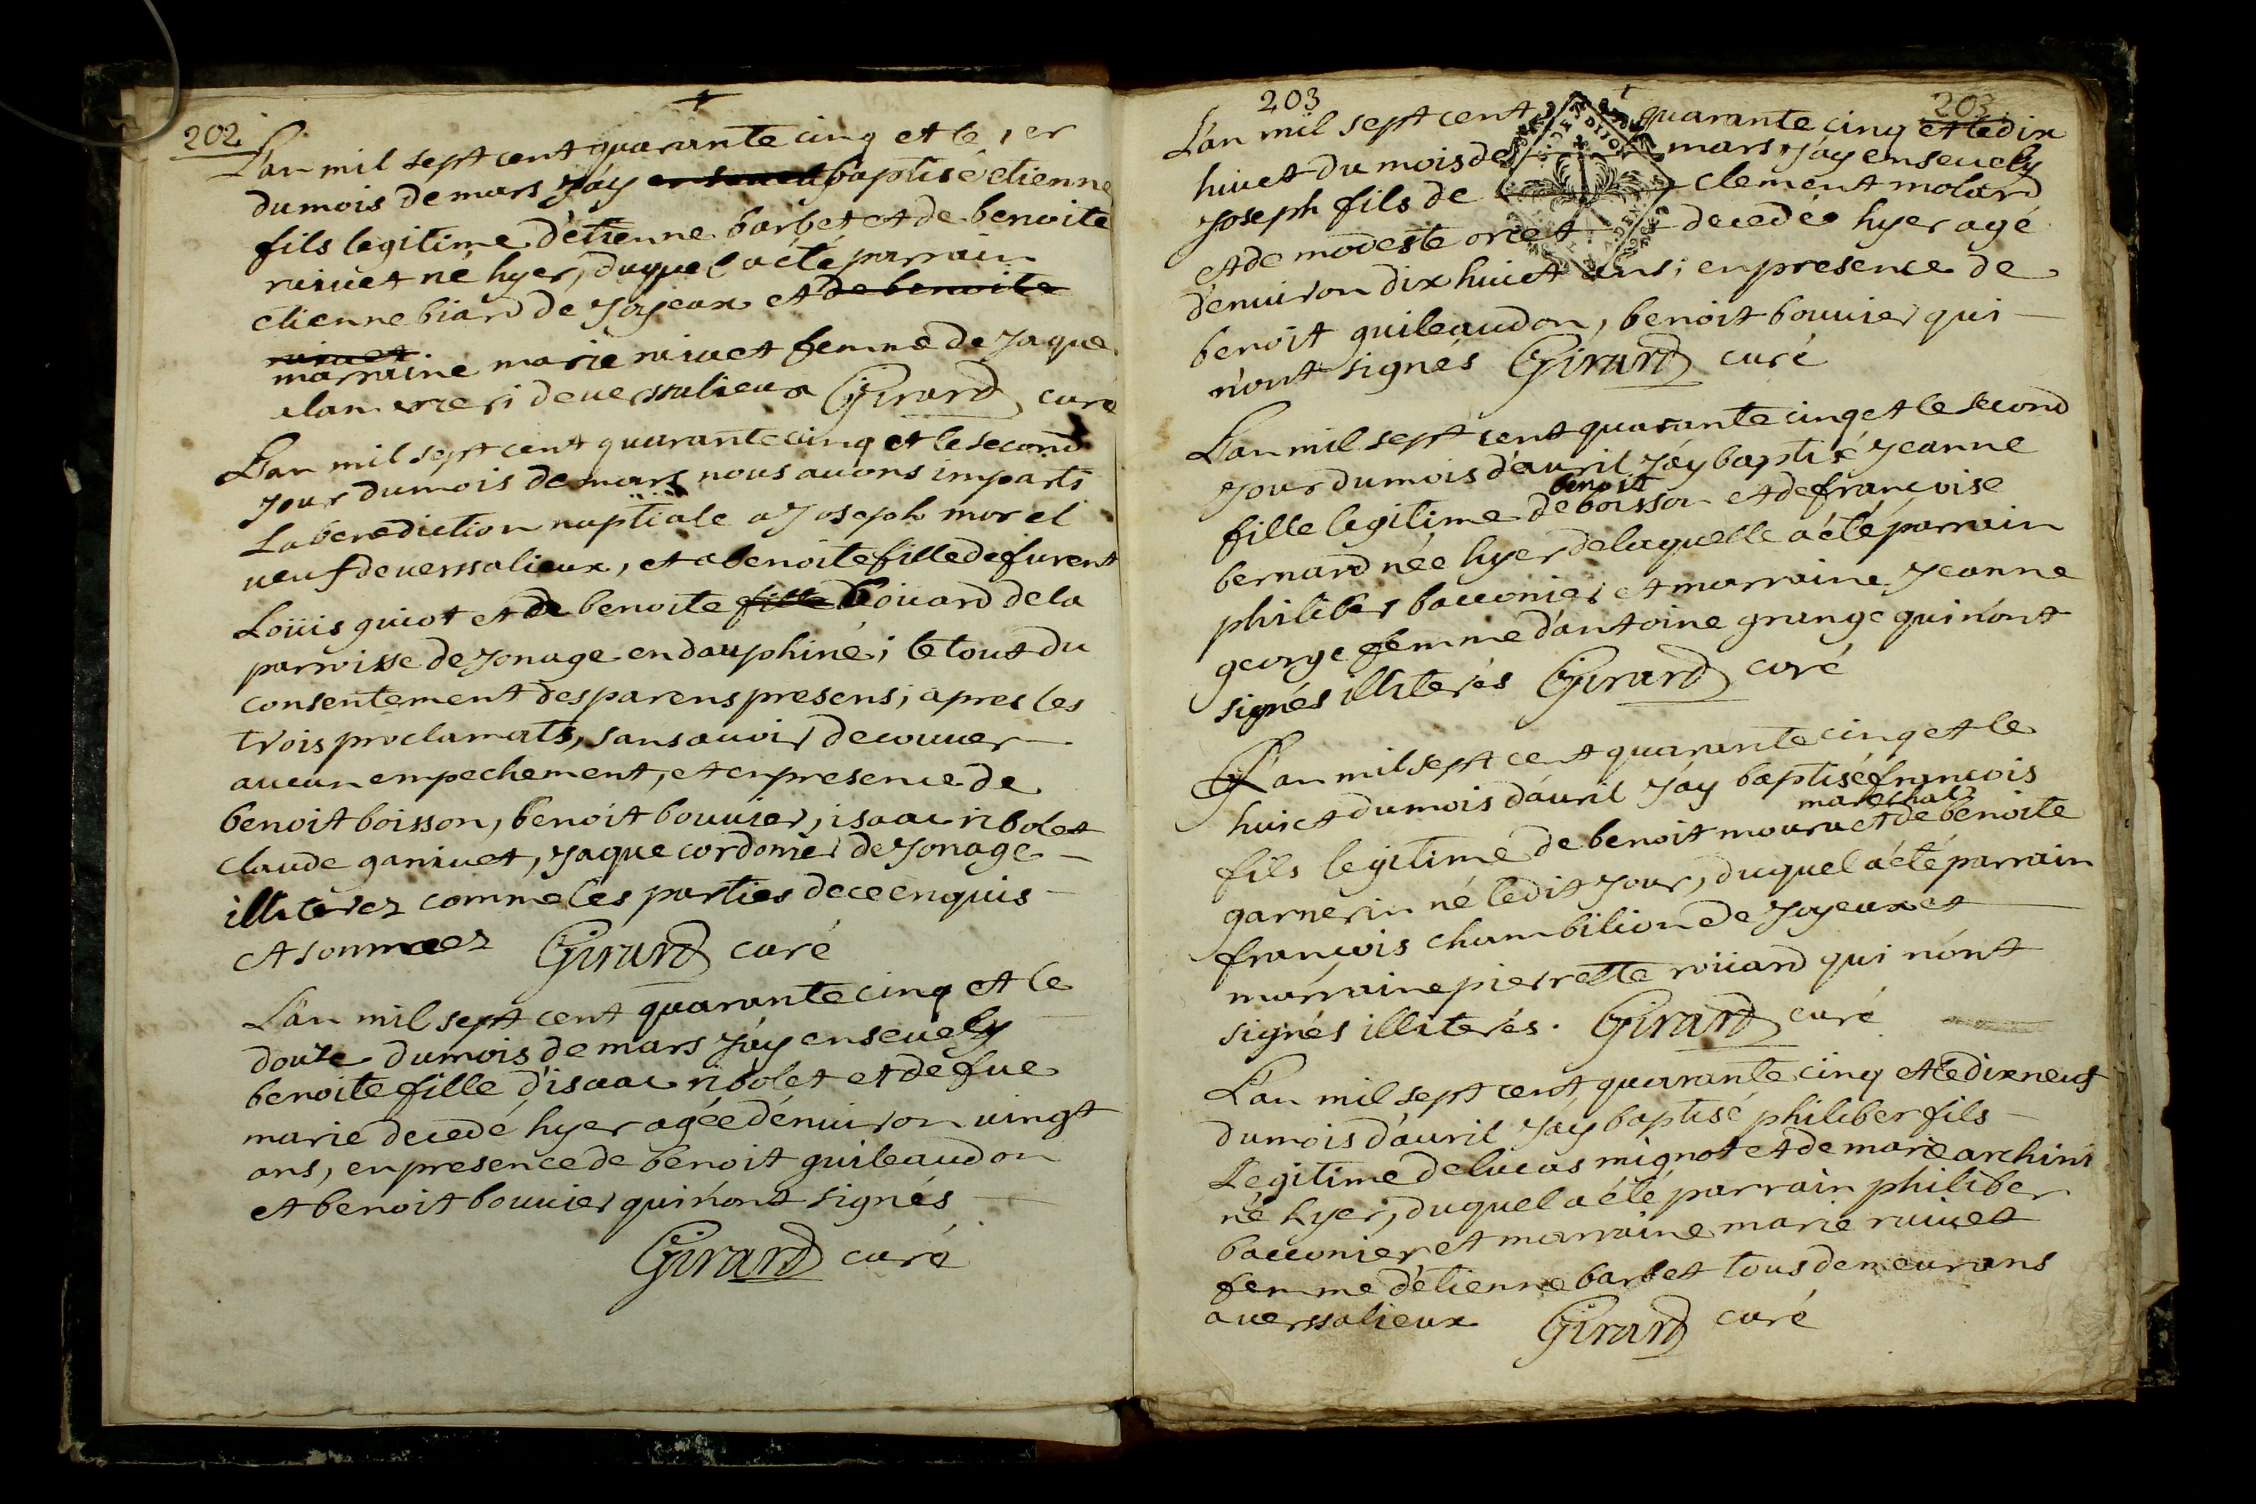 202
L'an mil sept cent quarante cinq et le 1er
du mois de mars j'áy baptisé etienne
fils legitime d'etienne barbet et de benoite
rivuet né hyer, duquel a été parrain
etienne biard de joyeux et de benoite
rivuet
marraine marie rivuet femme de jaque
de versalieux Girard curé
L'an mil sept cent quarante cinq et le second
jour du mois de mars nous avons imparti
La benediction nuptiale a joseph morel
veuf de versalieux, et a benoite fille de furent
Loüis guiot et de benoite fille boüard de la
parroisse de jonage en dauphiné; le tout du
consentement des parens presens; apres les
trois proclamats, sans avoir decouver
aucun empechement, et en presence de
benoit boisson, benoit bouvier, isaac ribolet
claude ganivet, jaque cordonier de jonage
illiterez comme les parties de ce enquis
et sommez Girard curé
L'an mil sept cent quarante cinq et le
douze du mois de mars j'áy ensevely
benoite fille d'isaac ribolet et de fue
marie decedé hyer agée d'environ vingt
ans, en presence de benoit guileaudon
et benoit bouvier qui n'ont signés
Girard curé
203
203
L'an mil sept cent quarante cinq et le dix
huict du mois de mars j'áy ensevely
joseph fils de clement molard
et de modeste oriet decedé hyer agé
d'environ dix huict ans; en presence de
benoit guileaudon, benoit bouvier qui
n'ont signés Girard curé
L'an mil sept cent quarante cinq et le second
jour du mois d'avril j'áy baptisé jeanne
benoit
fille legitime de boisson et de françoise
bernard née hyer de laquelle a été parrain
philiber bacconier et marraine jeanne
george femme d'antoine grange qui n'ont
signés illiterés Girard curé
L'an mil sept cent quarante cinq et le
huict du mois d'avril j'áy baptisé françois
mareshal
fils legitime de benoit et de benoite
garnerin né ledit jour, duquel a été parrain
françois chambilion de joyeux et
marraine pierrette roüard qui n'ont
signés illiterés. Girard curé
L'an mil sept cent quarante cinq et le dix neuf
du mois d'avril j'áy baptisé philiber fils
Legitime de lucas mignot et de marie archini
né hyer, duquel a été parrain philiber
bacconier et marraine marie rivuet
femme d'etienne barbet tous demeurans
a versalieux Girard curé